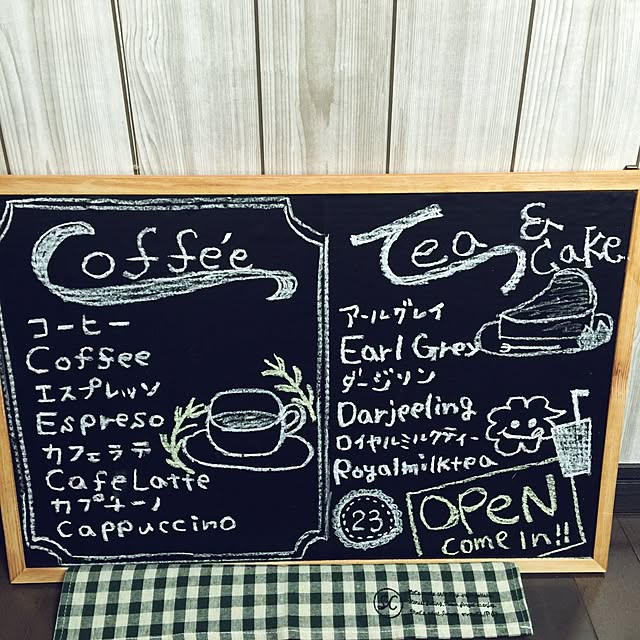 Coffée
コーヒー
Coffee
エスプレッソ
Espreso
カフェラテ
Cafe Latte
カプチーノ
Cappuccino
Tea & Cake
アールグレイ
Earl Grey
ダージリン
Darjeeling
ロイヤルミルクティー
Royalmilktea
23
OPeN
come In!!